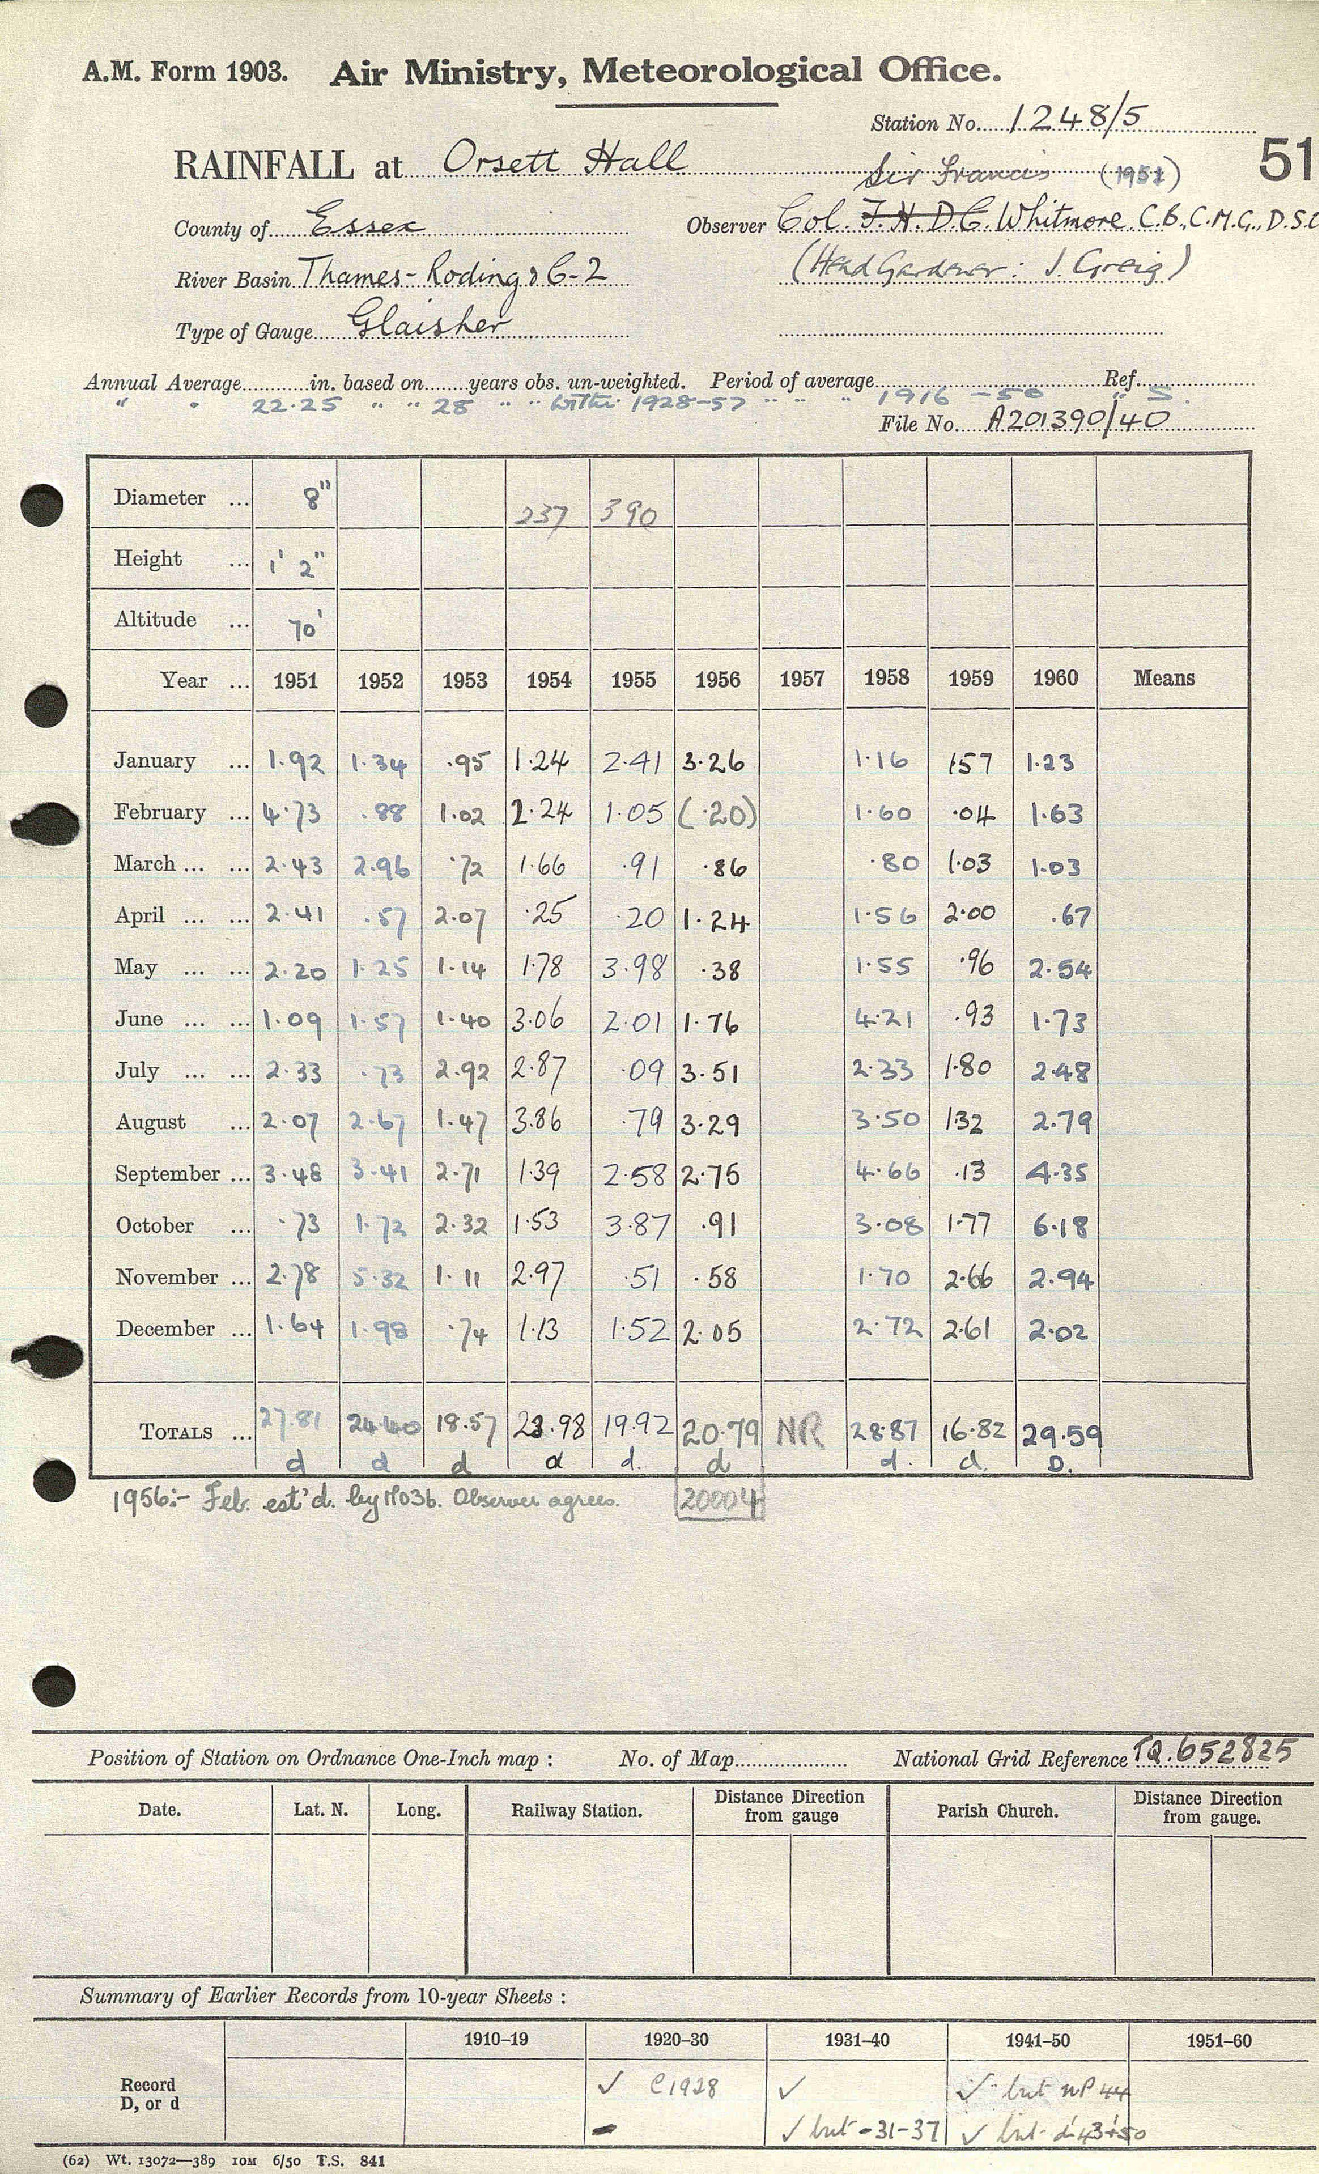 A.M. Form 1903. Air Ministry, Meteorological Office.
Station No. 1248/5
51
RAINFALL at Orsett Hall
Sir Francis (1951)
County of Essex
Observer Col. F. H. D. C. Whitmore. C.B., C.M.G., D.S.O
River Basin Thames - Roding & C-2
(Head Gardener: J. Greig)
Type of Gauge Glaisher
Annual Average in. based on years obs. un-weighted. Period of average Ref.
" " 22.25 " " 28 " " 1928-57 " " " 1916-50 " S.
File No. A201390/40
Diameter ... 8" 237 390
Height ... 1' 2"
Altitude ... 70'
Year ... 1951 1952 1953 1954 1955 1956 1957 1958 1959 1960 Means
January ... 1.92 1.34 .95 1.24 2.41 3.26 1.16 1.57 1.23
February ... 4.73 .88 1.02 2.24 1.05 (.20) 1.60 .04 1.63
March ... ... 2.43 2.96 .72 1.66 .91 .86 .80 1.03 1.03
April ... ... 2.41 .57 2.07 .25 .20 1.24 1.56 2.00 .67
May ... ... 2.20 1.25 1.14 1.78 3.98 .38 1.55 .96 2.54
June ... ... 1.09 1.57 1.40 3.06 2.01 1.76 4.21 .93 1.73
July ... ... 2.33 .73 2.92 2.87 .09 3.51 2.33 1.80 2.48
August ... 2.07 2.67 1.47 3.86 .79 3.29 3.50 1.32 2.79
September ... 3.48 3.41 2.71 1.39 2.58 2.75 4.66 .13 4.35
October ... .73 1.72 2.32 1.53 3.87 .91 3.08 1.77 6.18
November ... 2.78 5.32 1.11 2.97 .51 .58 1.70 2.66 2.94
December ... 1.64 1.98 .74 1.13 1.52 2.05 2.72 2.61 2.02
TOTALS ... 27.81 24.40 18.57 23.98 19.92 20.79 NR 28.87 16.82 29.59
d d d d d. d d. d. D.
1956:- Feb. est'd. by M03b. Observer agrees.
20004
Position of Station on Ordnance One-Inch map : No. of Map National Grid Reference TQ.652825
Date. Lat. N. Long. Railway Station. Distance Direction from gauge Parish Church. Distance Direction from gauge.
Summary of Earlier Records from 10-year Sheets :
1910–19 1920–30 1931–40 1941–50 1951–60
Record ✓ C1928 ✓ ✓ but nP 44
D, or d - ✓ but -31-37 ✓ but d 43+50
(62) Wt. 13072—389 10M 6/50 T.S. 841